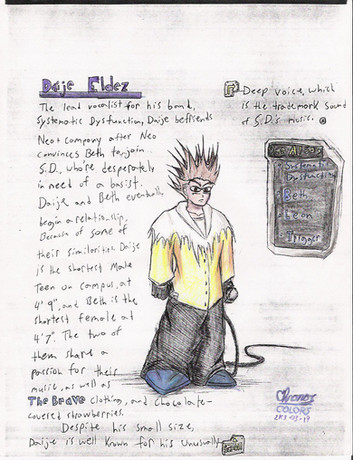 Daije Eldez
The lead vocalist for his band,
Systematic Dysfunction, Daije befriends
Neo + company after Neo
convinces Beth to join
S.D., who're desperately
in need of a basist.
Daije and Beth eventually
begin a relationship,
Because of some of
their similarities. Daije
is the shortest Male
Teen on campus, at
4'9", and Beth is the
shortest female at
4'7". The two of
them share a
passion for their
music, as well as
The Brave clothing, and chocolate-
covered strawberries.
Despite his small size,
Daije is well known for his unusually
Deep voice, which
is the trademark sound
of S.D.'s music.
Systematic
Dysfunction
Beth
Leon
Trigger
COLORS